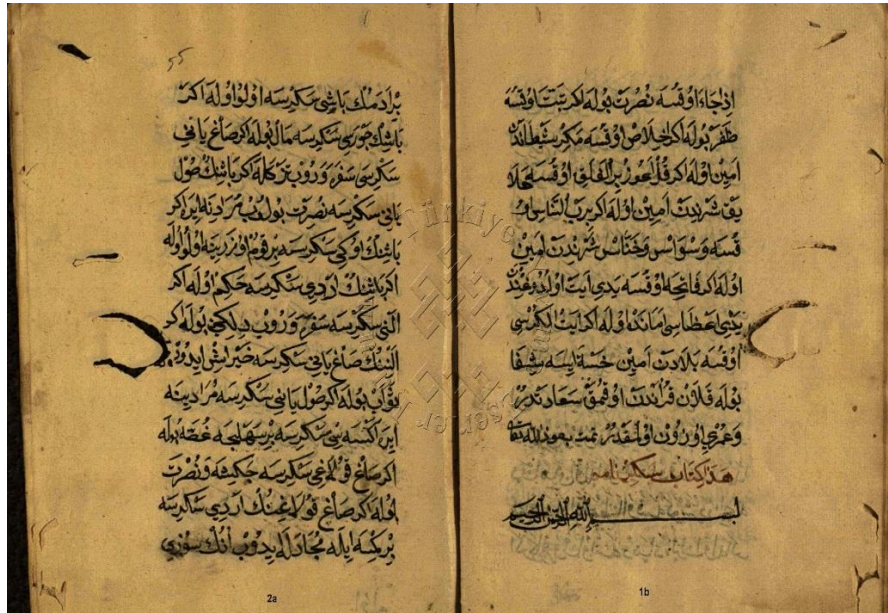 اِذَا جَاءَ اوقسه نصرت بوله اكر تبّت اوقسه
ظفر بوله اكر اخلاص اوقسه مكر شيطاندن
امين اوله اكر قل اعوذ برب الفلق اوقسه جمله
شرندن امين اوله اكر برب الناس او
قسه وسواس وخنّاس شرّندن امين
اوله اكر فاتحه اوقسه يدى ايت اولدوغندن
يدى اعضاسى اماندا اوله اكر ايت الكرسى
اوقسه بلادن امين خسته ايسه شفا
بوله قلان قراندن اوقمق سعادتدر
وعمرى اوزون اولمقدر تمت بعون الله تعالى
هذا كتاب سكرنامه
بسم الله الرحمن الرحيم
1b
55
بر ادمك باشى سكرسه اولو اوله اكر
باشك سكرسه مال بوله اكر صاغ يانى
سكرسى سفره وروب تيز كله اكر باشنك صول
يانى سكرسه نصرت بولوب مرادنه ايره اكر
باشنك اوكى سكرسه بر قوم اوزرينه اولو اوله
اكر باشنك اردى سكرسه حكيم اوله اكر
النى سكرسه سفره وروب ديلكجه بوله اكر
النينك صاغ يانى سكرسه خير ايش ايدوب
ثواب بوله اكر صول يانى سكرسه مرادينه
ايره اكسه سى سكرسه بر سهلجه غصه بوله
اكر صاغ قولاغى سكرسه چكشه و نصرت
اوله اكر صاغ قولاغينك اردى سكرسه
بر كسه ايله مجادله ايدوب انك سوزى
2a
Türkiye